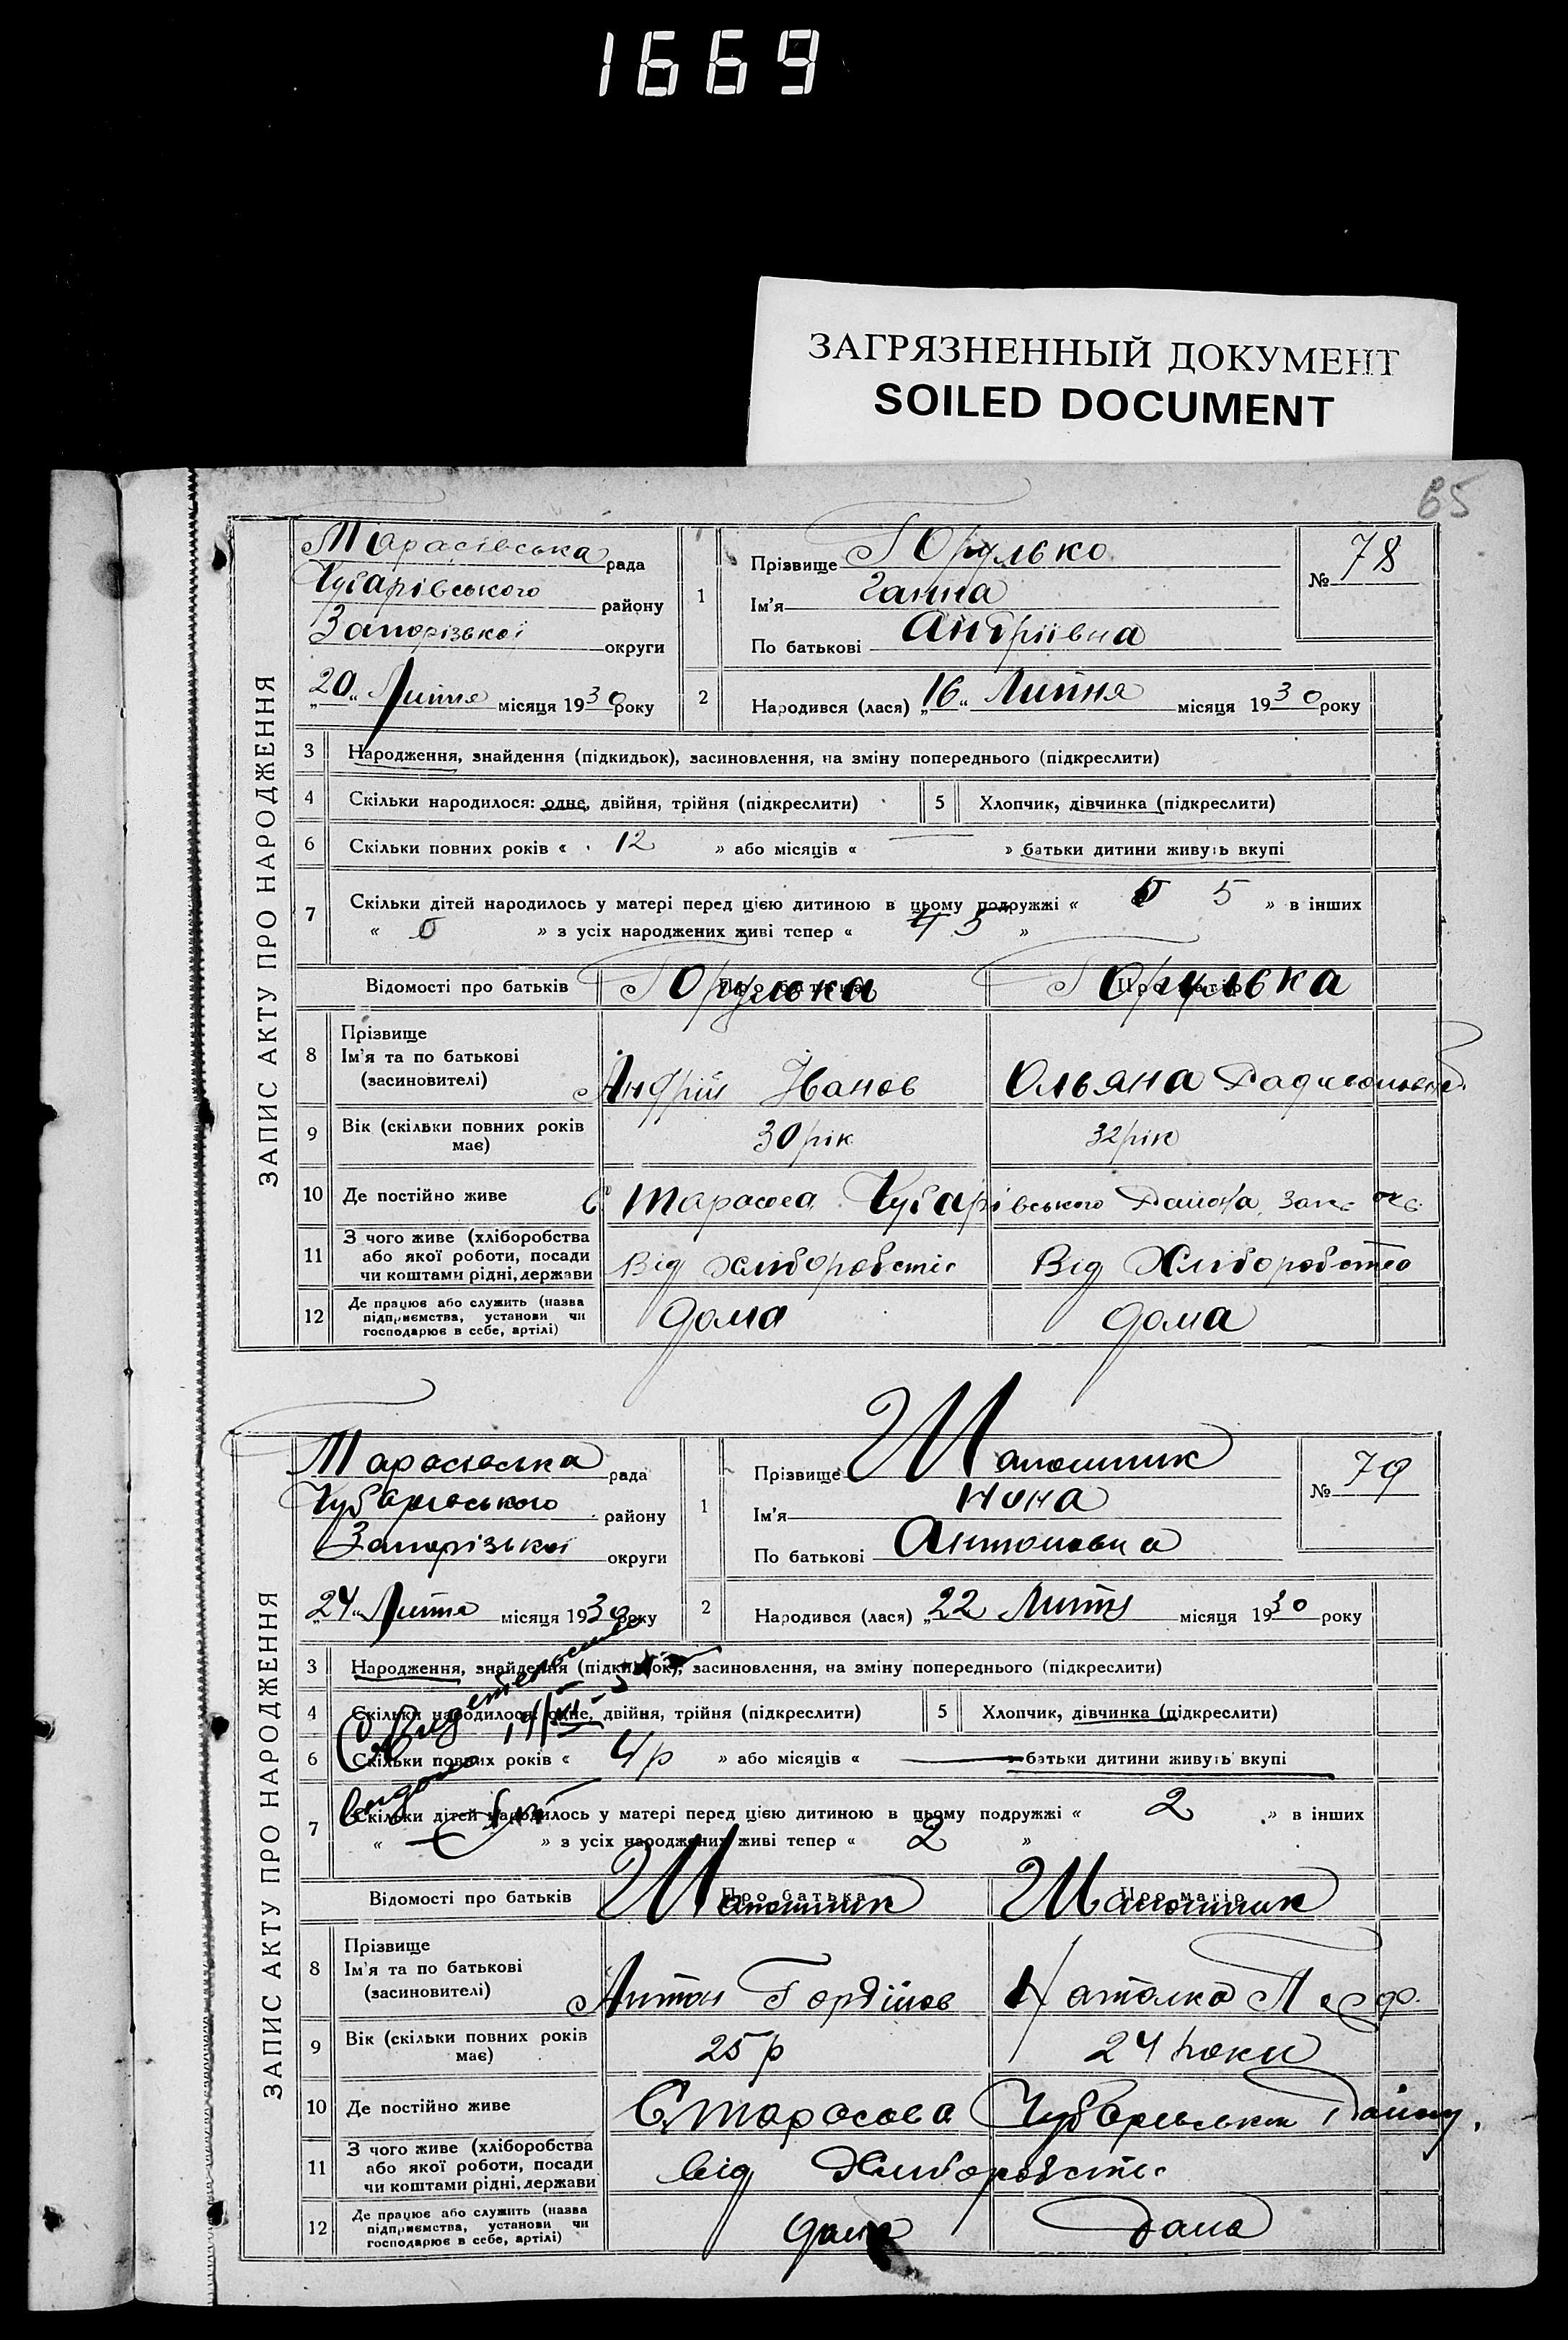 1669
ЗАГРЯЗНЕННЫЙ ДОКУМЕНТ
SOILED DOCUMENT
65
ЗАПИС АКТУ ПРО НАРОДЖЕННЯ
Тарасівська рада
Чубарівського району
Запорізької округи
„20“ Липня місяця 1930 року
1
Прізвище
Ім'я Ганна
По батькові Андріївна
№ 78
2 Народився (лася) „16“ Липня місяця 1930 року
3 Народження, знайдення (підкидьок), засиновлення, на зміну попереднього (підкреслити)
4 Скільки народилося: одне, двійня, трійня (підкреслити) 5 Хлопчик, дівчинка (підкреслити)
6 Скільки повних років « 12 » або місяців « — » батьки дитини живуть вкупі
7 Скільки дітей народилось у матері перед цією дитиною в цьому подружжі « 5 » в інших
« 0 » з усіх народжених живі тепер « 5 »
Відомості про батьків Про батька Про матір
8 Прізвище
Ім'я та по батькові
(засиновителі)
Андрій Іванов Ольяна
9 Вік (скільки повних років має) 30 рік 32 рік
10 Де постійно живе С Тарасова Чубарівського Района
11 З чого живе (хліборобства або якої роботи, посади чи коштами рідні, держави Від Хліборобства Від Хліборобства
12 Де працює або служить (назва підприємства, установи чи господарює в себе, артілі) дома дома
ЗАПИС АКТУ ПРО НАРОДЖЕННЯ
Тарасівська рада
Чубарівського району
Запорізької округи
„24“ Липня місяця 1930 року
1
Прізвище
Ім'я Нона
По батькові Антоновна
№ 79
2 Народився (лася) „22 Липня місяця 1930 року
3 Народження, знайдення (підкидьок), засиновлення, на зміну попереднього (підкреслити)
4 Скільки народилося: одне, двійня, трійня (підкреслити) 5 Хлопчик, дівчинка (підкреслити)
6 Скільки повних років « 4 р » або місяців « — батьки дитини живуть вкупі
7 Скільки дітей народилось у матері перед цією дитиною в цьому подружжі « 2 » в інших
« — » з усіх народжених живі тепер « 2 »
Свидетельство
видано
Відомості про батьків Про батька Про матір
8 Прізвище
Ім'я та по батькові
(засиновителі)
Антон Гордійов Наталка
9 Вік (скільки повних років має) 25 р 24 роки
10 Де постійно живе С Тарасова Чубарівськ Району
11 З чого живе (хліборобства або якої роботи, посади чи коштами рідні, держави від Хліборобства
12 Де працює або служить (назва підприємства, установи чи господарює в себе, артілі) дома дома